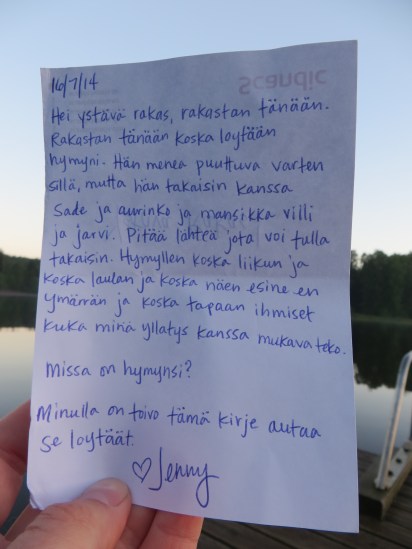 Scandic
16/7/14
Hei ystävä rakas, rakastan tänään.
Rakastan tänään koska loytään
hymyni. Hän menea puuttuva varten
sillä, mutta hän takaisin kanssa
Sade ja aurinko ja mansikka villi
ja jarvi. Pitää lähteä jota voi tulla
takaisin. Hymyllen koska liikun ja
koska laulan ja koska näen esine en
ymärrän ja koska tapaan ihmiset
kuka minä yllatys kanssa mukava teko.
Missa on hymynsi?
Minulla on toivo tämä kirje autaa
se loytäät.
♡ Jenny